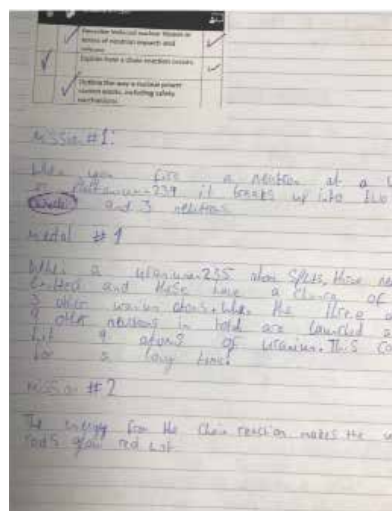 Describe induced nuclear fission in
terms of neutron impact and
release.
Explain how a chain reaction occurs.
Outline the way a nuclear power
station works, including safety
mechanisms.
Mission #1:
When you fire a neutron at a
it breaks up into two
and 3 neutrons
medal #1
When a uranium 235 atom splits, three
and these have a chance of
3 other uranium atoms. When the three
9 other neutrons in total are launched
hit 9 atoms of uranium. This
for a long time!
Mission #2
The energy from the chain reaction makes the
rods glow red hot